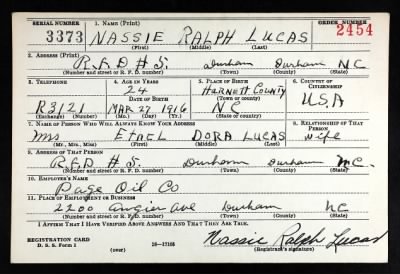 SERIAL NUMBER 1. NAME (Print) ORDER NUMBER
3373 NASSIE RALPH LUCAS 2454
(First) (Middle) (Last)
2. ADDRESS (Print)
R.F.D # 5. Durham Durham NC
(Number and street or R. F. D. number) (Town) (County) (State)
3. TELEPHONE 4. AGE IN YEARS 5. PLACE OF BIRTH 6. COUNTRY OF CITIZENSHIP
24 HARNETT COUNTY
DATE OF BIRTH (Town or county)
R3121 MAR. 27 1916 NC U.S.A
(Exchange) (Number) (Mo.) (Day) (Yr.) (State or country)
7. NAME OF PERSON WHO WILL ALWAYS KNOW YOUR ADDRESS 8. RELATIONSHIP OF THAT PERSON
Mrs ETHEL DORA LUCAS wife
(Mr., Mrs., Miss) (First) (Middle) (Last)
9. ADDRESS OF THAT PERSON
R.F.D # 5. Durham Durham N.C.
(Number and street or R. F. D. number) (Town) (County) (State)
10. EMPLOYER'S NAME
Page Oil Co
11. PLACE OF EMPLOYMENT OR BUSINESS
2200 Angier Ave Durham NC
(Number and street or R. F. D. number) (Town) (County) (State)
I AFFIRM THAT I HAVE VERIFIED ABOVE ANSWERS AND THAT THEY ARE TRUE.
REGISTRATION CARD
D. S. S. Form 1 (over) 16—17105 Nassie Ralph Lucas